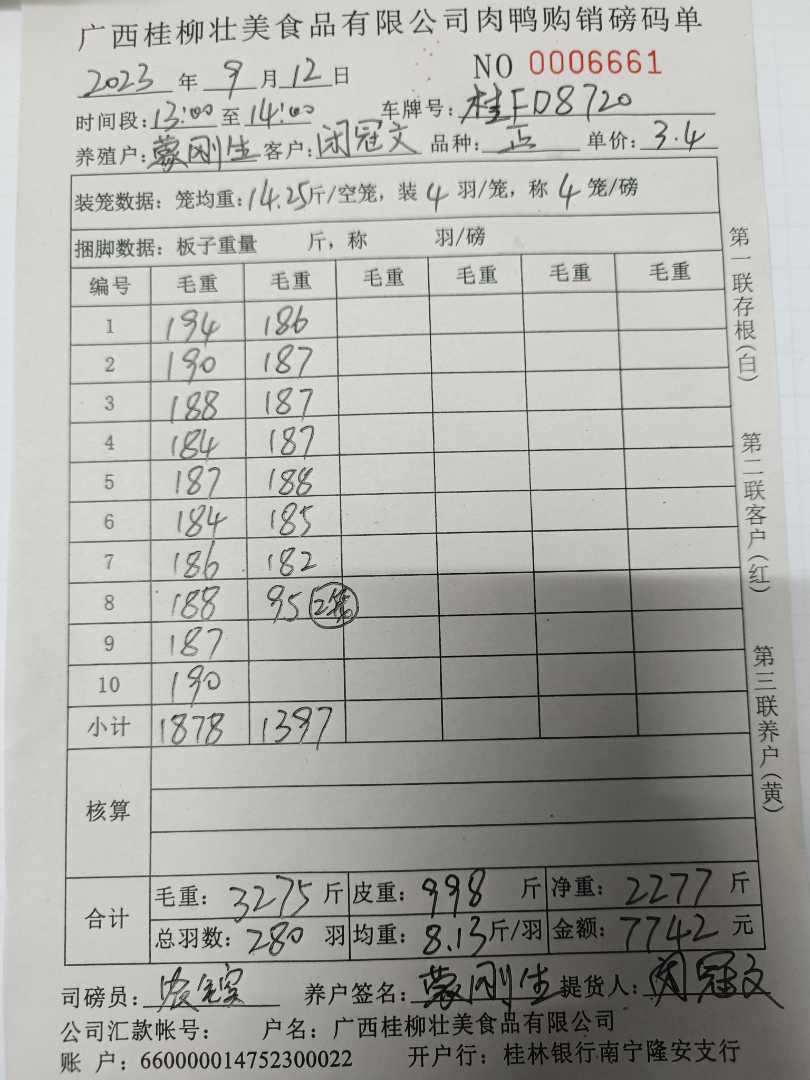 广西桂柳壮美食品有限公司肉鸭购销磅码单
2023 年 9 月 12 日 NO 0006661
时间段: 13:00 至 14:00 车牌号: 桂FD8720
养殖户: 蒙刚生 客户: 闭冠文 品种: 正 单价: 3.4
装笼数据: 笼均重: 14.25斤/空笼, 装 4 羽/笼, 称 4 笼/磅
捆脚数据: 板子重量 斤, 称 羽/磅
编号 毛重 毛重 毛重 毛重 毛重 毛重
1 194 186
2 190 187
3 188 187
4 184 187
5 187 188
6 184 185
7 186 182
8 188 95 2笼
9 187
10 190
小计 1878 1397
核算
合计
毛重: 3275 斤 皮重: 998 斤 净重: 2277 斤
总羽数: 280 羽 均重: 8.13斤/羽 金额: 7742 元
司磅员: 养户签名: 蒙刚生 提货人: 闭冠文
公司汇款帐号: 户名: 广西桂柳壮美食品有限公司
账 户: 660000014752300022 开户行: 桂林银行南宁隆安支行
第一联存根(白)
第二联客户(红)
第三联养户(黄)